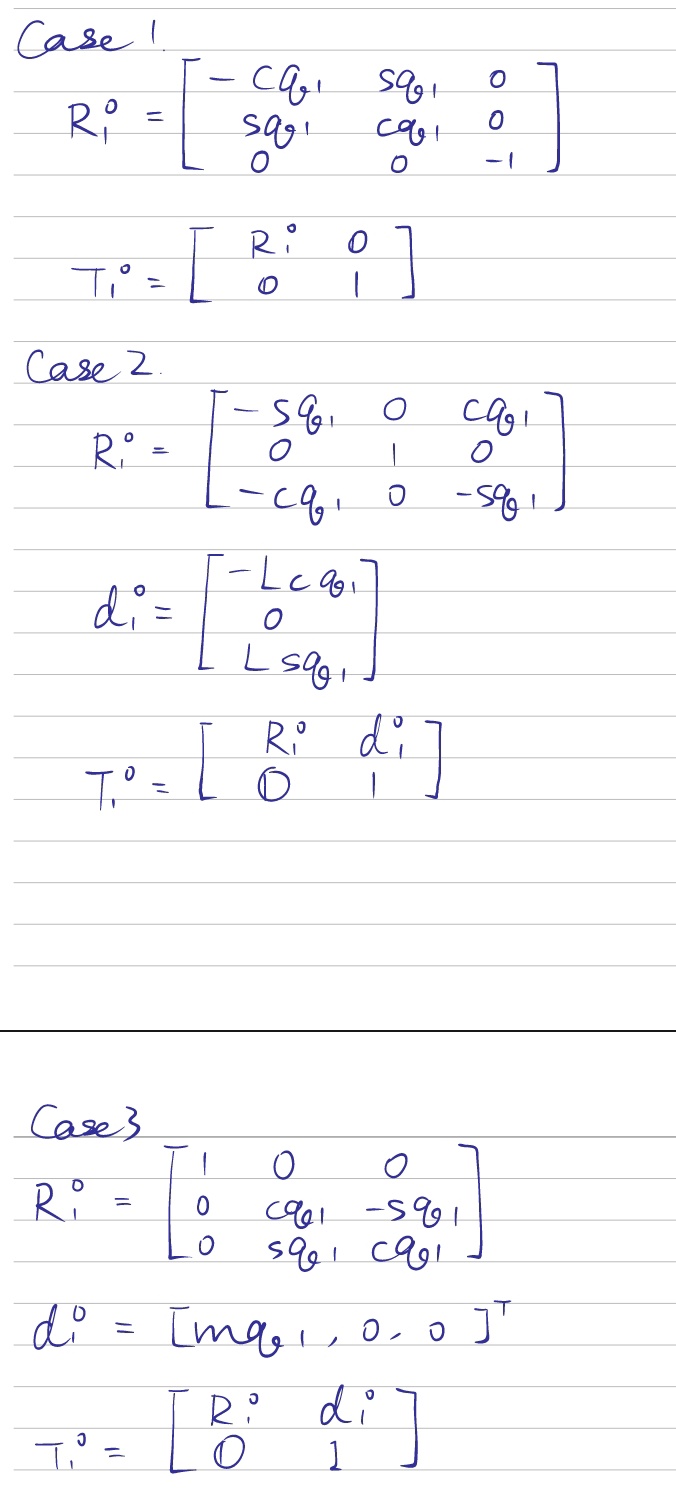 Case 1.
R₁⁰ = [ -cq₁ sq₁ 0
sq₁ cq₁ 0
0 0 -1 ]
T₁⁰ = [ R₁⁰ 0
0 1 ]
Case 2.
R₁⁰ = [ -sq₁ 0 cq₁
0 1 0
-cq₁ 0 -sq₁ ]
d₁⁰ = [ -Lcq₁
0
Lsq₁ ]
T₁⁰ = [ R₁⁰ d₁⁰
0 1 ]
Case3
R₁⁰ = [ 1 0 0
0 cq₁ -sq₁
0 sq₁ cq₁ ]
d₁⁰ = [mq₁, 0, 0 ]ᵀ
T₁⁰ = [ R₁⁰ d₁⁰
0 1 ]